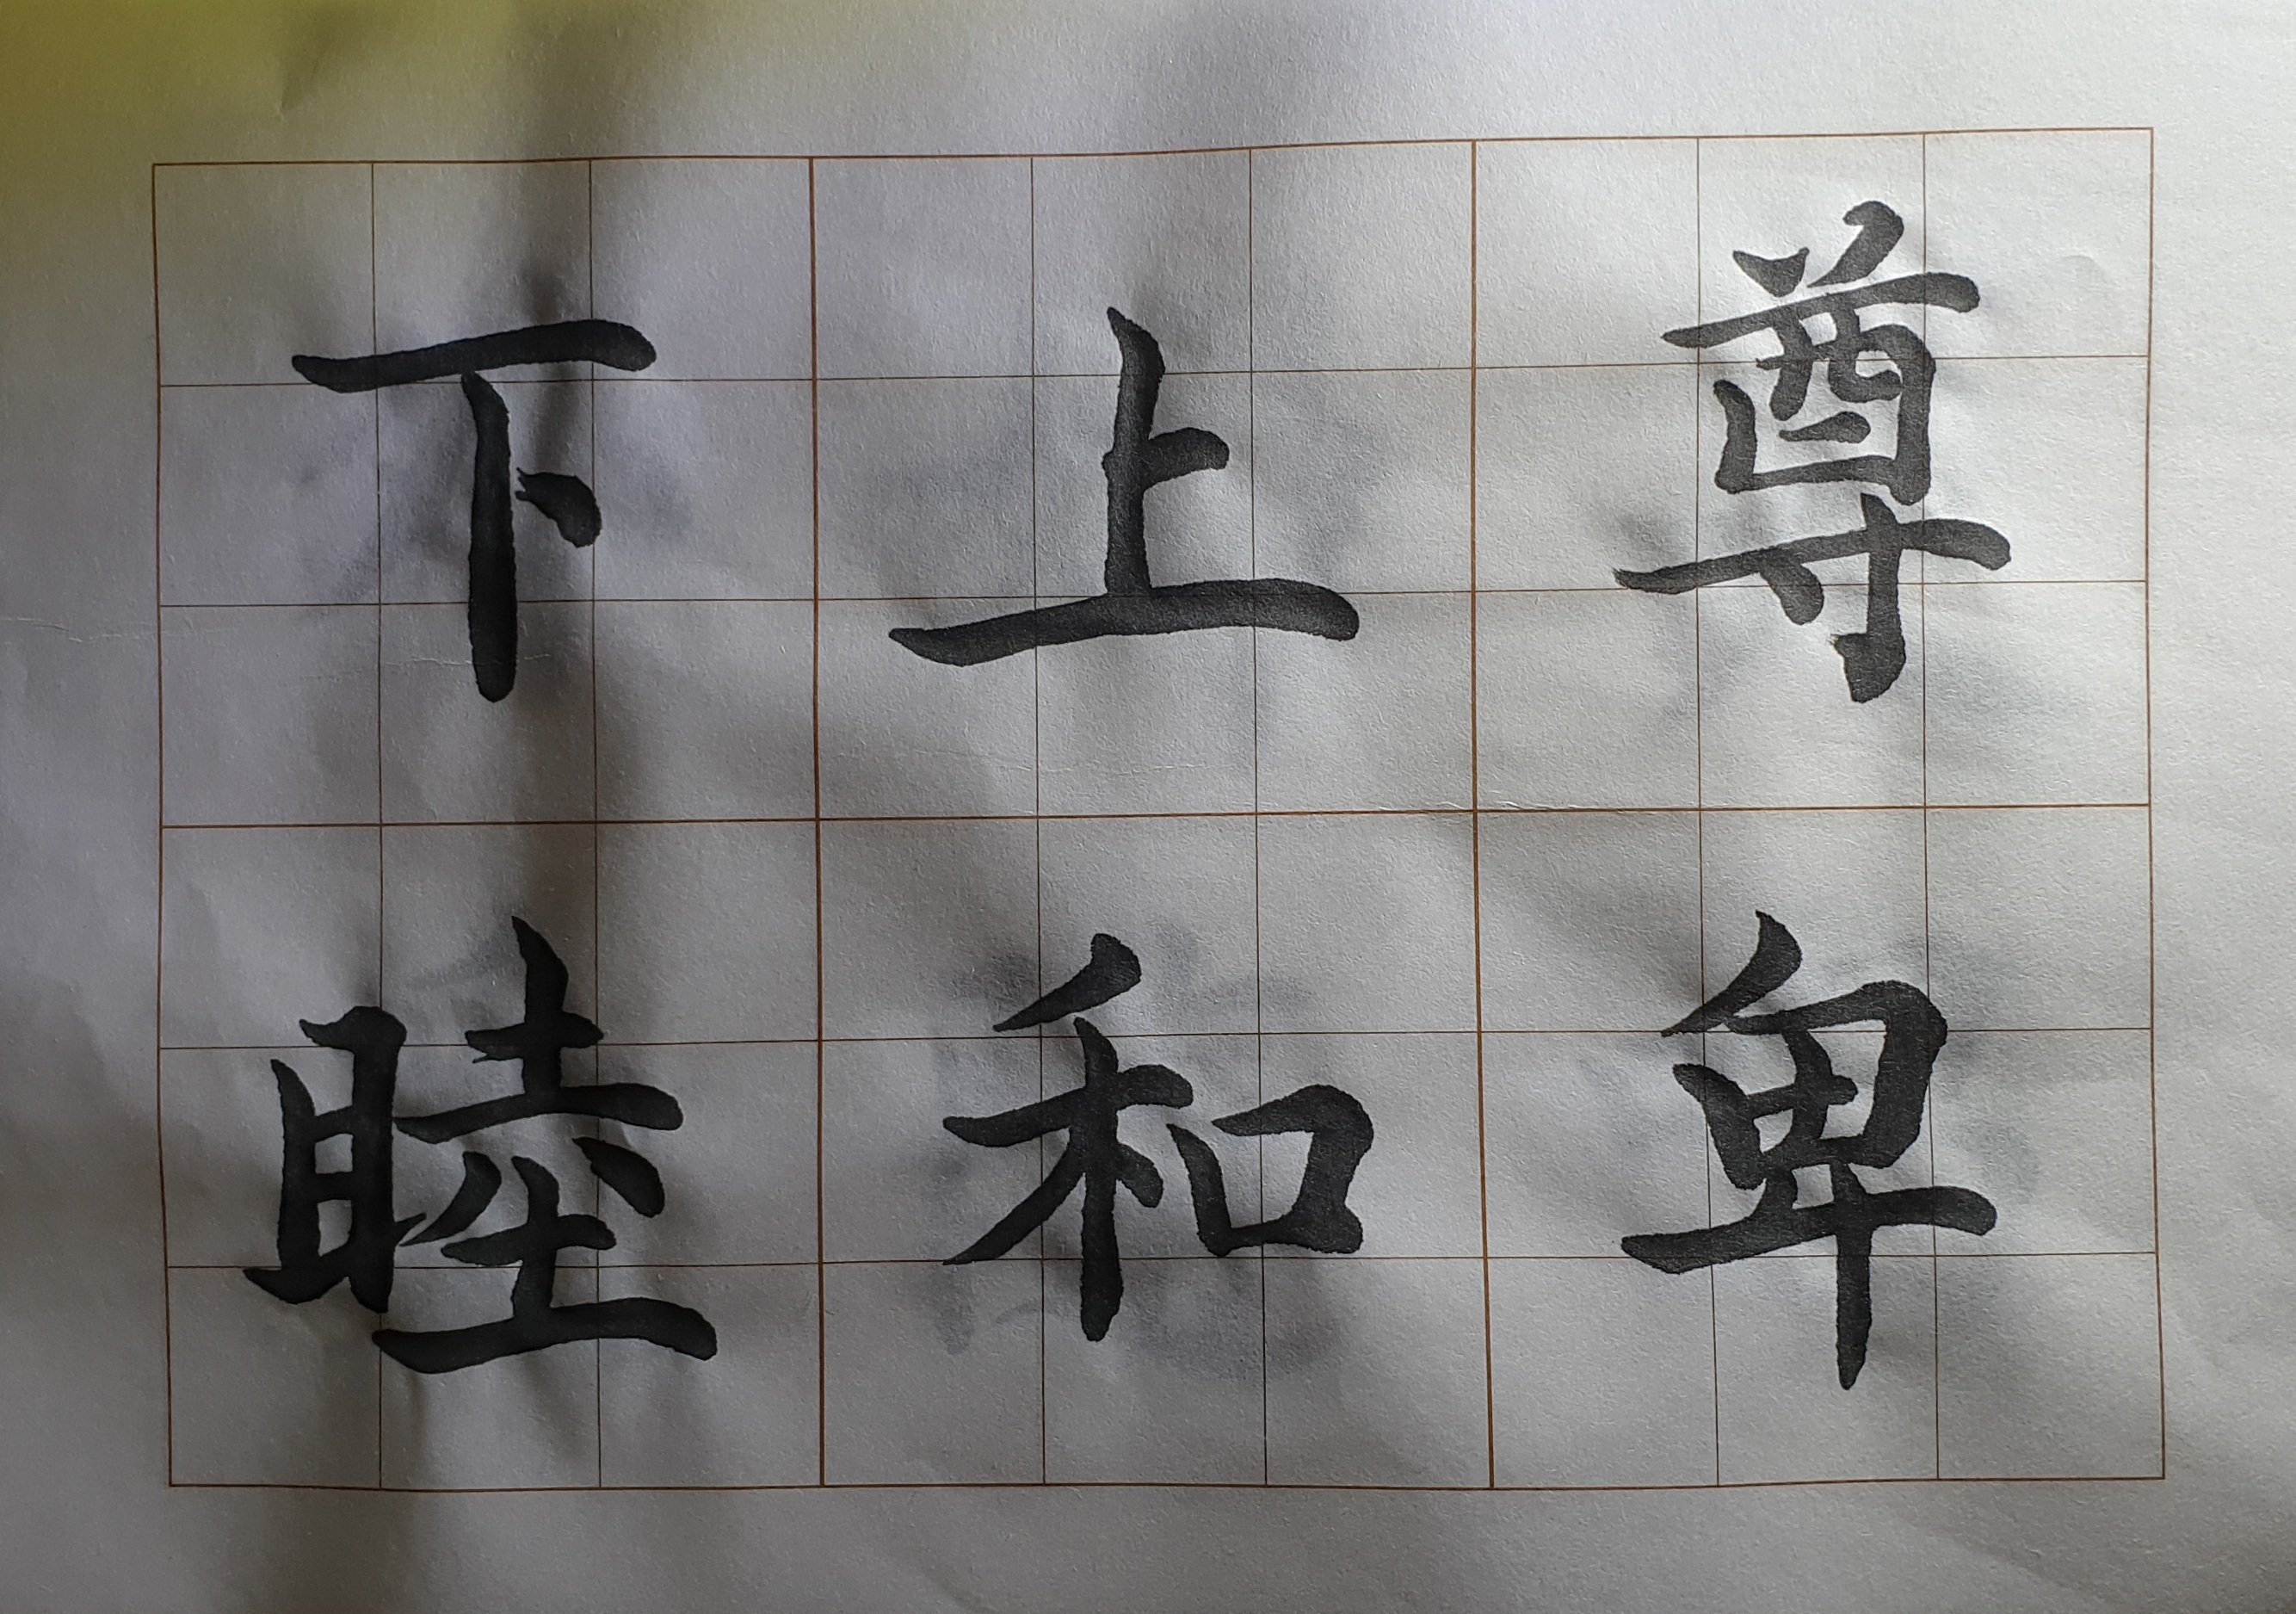 尊卑
上和
下睦